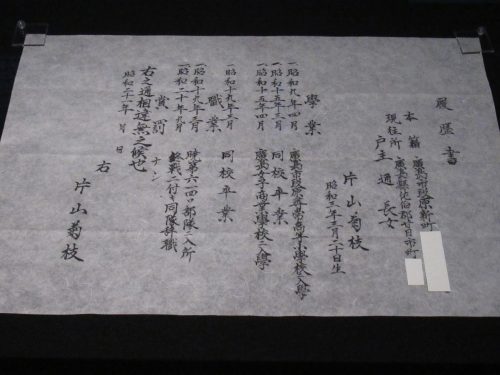 履歴書
本籍 廣島市段原新町
現住所 廣島縣佐伯郡廿日市町
戸主 通 長女
片山菊枝
昭和三年二月二十日生
學業
一昭和九年四月 廣島市段原尋常高等小學校ニ入學
一昭和十五年三月 同校卒業
一昭和十五年四月 廣島女子高等學校ニ入學
一昭和十九年三月 同校卒業
職業
一昭和十九年三月 暁第六一四〇部隊ニ入所
一昭和二十年九月 終戰ニ付キ同隊辞職
賞罰
ナシ
右之通相違無之候也
昭和二十一年 月 日
右 片山菊枝